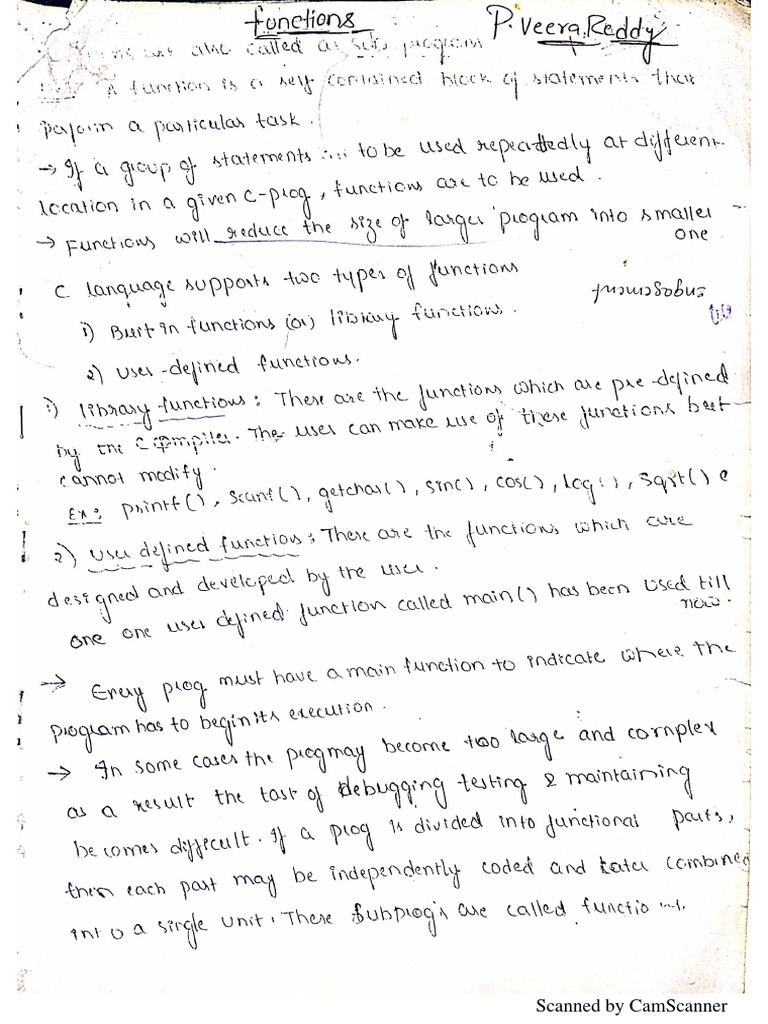 functions
P. Veera Reddy
also called as sub program
A function is a self contained block of statements that
perform a particular task.
→ If a group of statements to be used repeatedly at different
location in a given c-prog, functions are to be used.
→ Functions will reduce the size of larger program into smaller
one
C language supports two types of functions
1) Built in functions (or) library functions.
2) user-defined functions.
1) library functions: There are the functions which are pre-defined
by the C compiler. The user can make use of these functions but
cannot modify.
Ex: printf(), scanf(), getchar(), sin(), cos(), log(), sqrt() e
2) user defined functions: There are the functions which are
designed and developed by the user.
one one user defined function called main() has been used till
now.
→ Every prog must have a main function to indicate where the
program has to begin its execution.
→ In some cases the prog may become too large and complex
as a result the task of debugging testing & maintaining
becomes difficult. If a prog is divided into functional parts,
then each part may be independently coded and later combined
into a single unit. These subprog's are called
Scanned by CamScanner